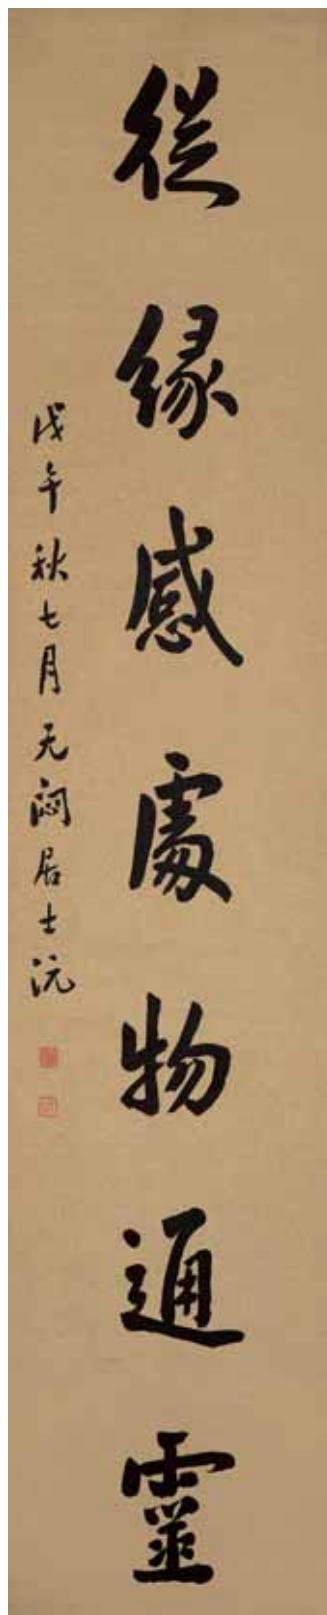 從緣感處物通靈
戊午秋七月无悶居士沅